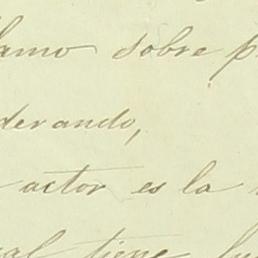 lamo sobre p
derando,
actor es la
al tiene lu